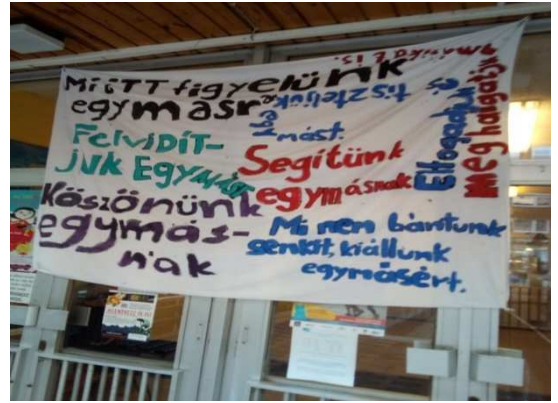 Mi iTT figyelünk
egymásra
tiszteljük
egy
mást.
FelviDÍT-
juk EgyMÁST
Segítünk
egymásnak
Köszönünk
egymás-
nak
Mi nem bántunk
senkit, kiállunk
egymásért.
Elfogadjuk és
meghallgatjuk